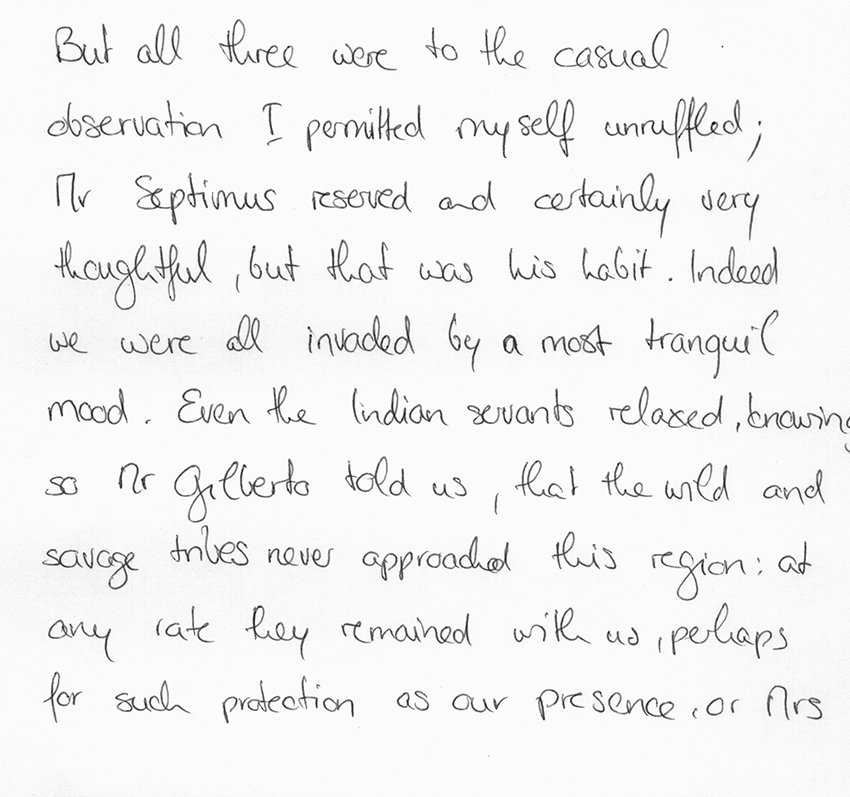 But all three were to the casual
observation I permitted myself unruffled;
Mr Septimus reserved and certainly very
thoughtful, but that was his habit. Indeed
we were all invaded by a most tranquil
mood. Even the Indian servants relaxed, knowing
so Mr Gilberto told us, that the wild and
savage tribes never approached this region: at
any rate they remained with us, perhaps
for such protection as our presence, or Mrs